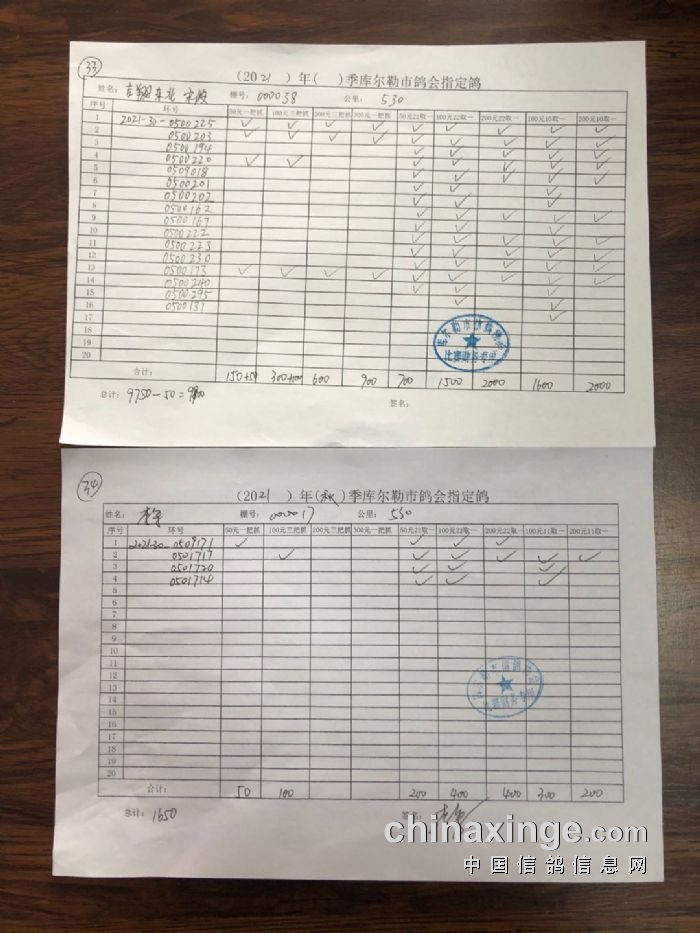 33
(2021 ) 年( )季库尔勒市鸽会指定鸽
姓名: 棚号: 000038 公里: 530
序号 环号 50元一把抓 100元三把抓 200元三把抓 300元一把抓 50元22取一 100元22取一 200元22取一 100元10取一 200元10取一
1 2021-30-0500225 ✓ ✓ ✓ ✓ ✓ ✓ ✓ ✓ ✓
2 0500203
3 0500194
4 0500220
5 0509018
6 0500201
7 0500202
8 0500162
9 0500167
10 0500222
11 0500223
12 0500230
13 0500173
14 0500240
15 0500295
16 0500131
17
18
19
20
合计: 150+50 300+100 600 900 700 1500 2000 1600 2000
总计: 9750-50=
签名:
库尔勒市信鸽协会
比赛财务专用
34
(2021 ) 年(秋)季库尔勒市鸽会指定鸽
姓名: 棚号: 000017 公里: 530
序号 环号 50元一把抓 100元三把抓 200元三把抓 300元一把抓 50元22取一 100元22取一 200元22取一 100元11取一 200元11取一
1 2021-30-0509171 ✓ ✓ ✓ ✓
2 0501717 ✓ ✓ ✓ ✓ ✓ ✓
3 0501720 ✓ ✓ ✓
4 0501714 ✓ ✓ ✓
5
6
7
8
9
10
11
12
13
14
15
16
17
18
19
20
合计: 50 100 200 400 400 300 200
总计: 1650
签名:
chinaxinge.com
中国信鸽信息网